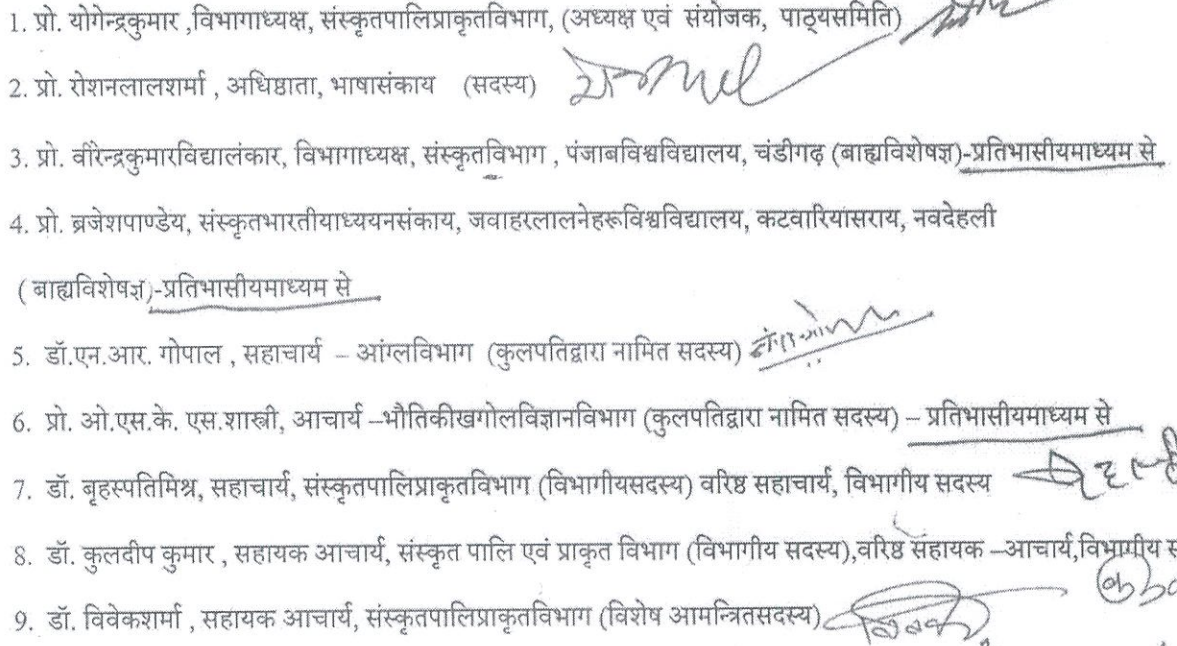 1. प्रो. योगेन्द्रकुमार ,विभागाध्यक्ष, संस्कृतपालिप्राकृतविभाग, (अध्यक्ष एवं संयोजक, पाठ्यसमिति)
2. प्रो. रोशनलालशर्मा , अधिष्ठाता, भाषासंकाय (सदस्य)
3. प्रो. वीरेन्द्रकुमारविद्यालंकार, विभागाध्यक्ष, संस्कृतविभाग , पंजाबविश्वविद्यालय, चंडीगढ़ (बाह्यविशेषज्ञ)-प्रतिभासीयमाध्यम से
4. प्रो. ब्रजेशपाण्डेय, संस्कृतभारतीयाध्ययनसंकाय, जवाहरलालनेहरूविश्वविद्यालय, कटवारियासराय, नवदेहली
( बाह्यविशेषज्ञ)-प्रतिभासीयमाध्यम से
5. डॉ.एन.आर. गोपाल , सहाचार्य – आंग्लविभाग (कुलपतिद्वारा नामित सदस्य)
6. प्रो. ओ.एस.के. एस.शास्त्री, आचार्य –भौतिकीखगोलविज्ञानविभाग (कुलपतिद्वारा नामित सदस्य) – प्रतिभासीयमाध्यम से
7. डॉ. बृहस्पतिमिश्र, सहाचार्य, संस्कृतपालिप्राकृतविभाग (विभागीयसदस्य) वरिष्ठ सहाचार्य, विभागीय सदस्य
8. डॉ. कुलदीप कुमार , सहायक आचार्य, संस्कृत पालि एवं प्राकृत विभाग (विभागीय सदस्य),वरिष्ठ सहायक –आचार्य,विभागीय स
9. डॉ. विवेकशर्मा , सहायक आचार्य, संस्कृतपालिप्राकृतविभाग (विशेष आमन्त्रितसदस्य)